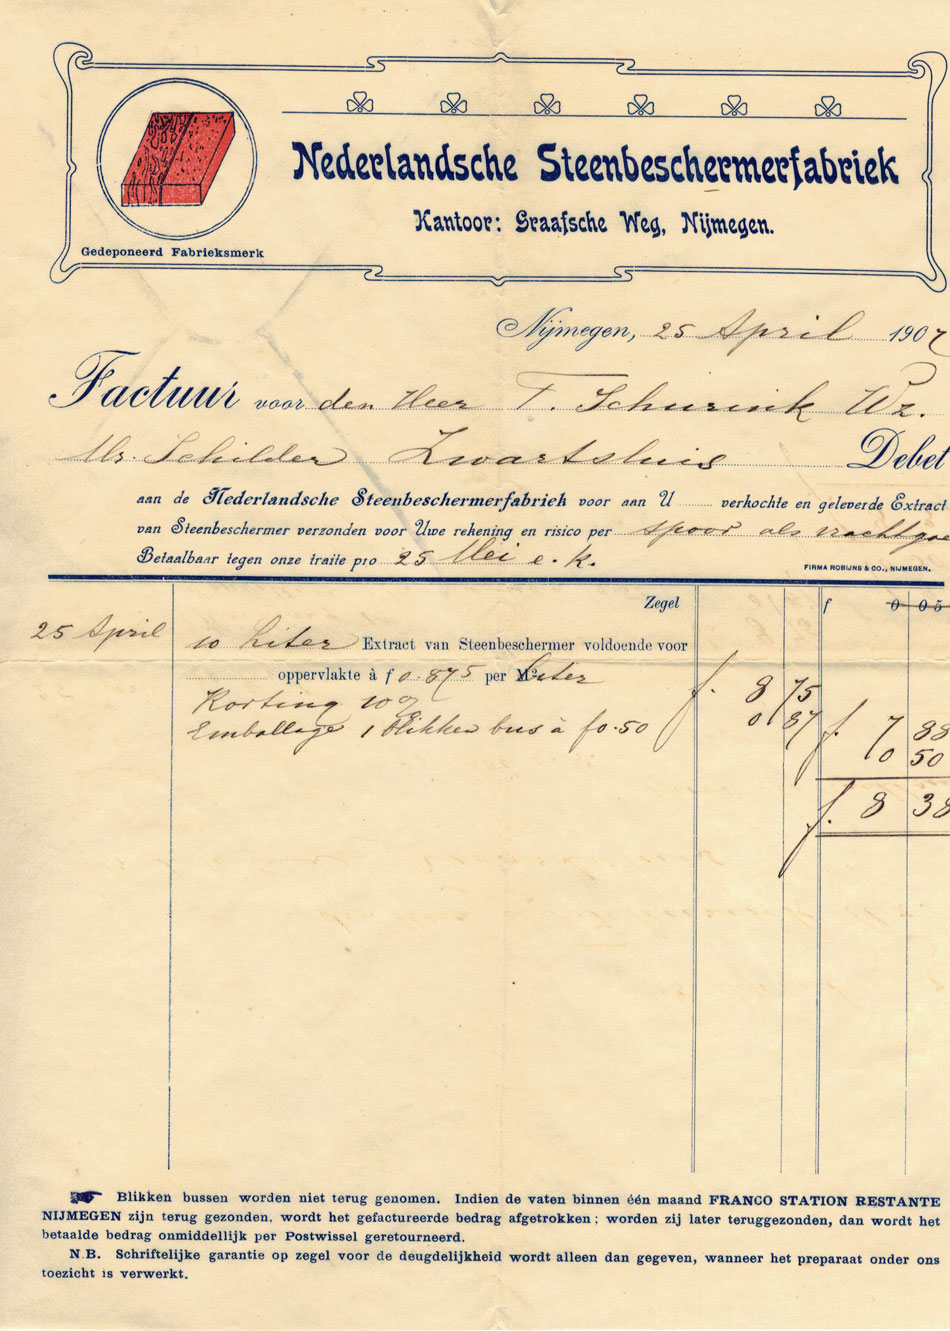 Nederlandsche Steenbeschermerfabriek
Kantoor: Graafsche Weg, Nijmegen.
Gedeponeerd Fabrieksmerk
Nijmegen, 25 April 1907
Factuur voor den Heer F. Schurink Wz.
Mr. Schilder Zwartsluis Debet
aan de Nederlandsche Steenbeschermerfabriek voor aan U verkochte en geleverde Extract
van Steenbeschermer verzonden voor Uwe rekening en risico per spoor als vrachtgoe
Betaalbaar tegen onze traite pro 25 Mei e.k.
FIRMA ROBIJNS & CO., NIJMEGEN.
Zegel f 0 05
25 April 10 Liter Extract van Steenbeschermer voldoende voor
oppervlakte à f 0.875 per M². Liter f. 8 75
Korting 10% 0 87 f. 7 88
Emballage 1 blikken bus à f 0.50 0 50
f. 8 38
Blikken bussen worden niet terug genomen. Indien de vaten binnen één maand FRANCO STATION RESTANTE
NIJMEGEN zijn terug gezonden, wordt het gefactureerde bedrag afgetrokken; worden zij later teruggezonden, dan wordt het
betaalde bedrag onmiddellijk per Postwissel geretourneerd.
N.B. Schriftelijke garantie op zegel voor de deugdelijkheid wordt alleen dan gegeven, wanneer het preparaat onder ons
toezicht is verwerkt.